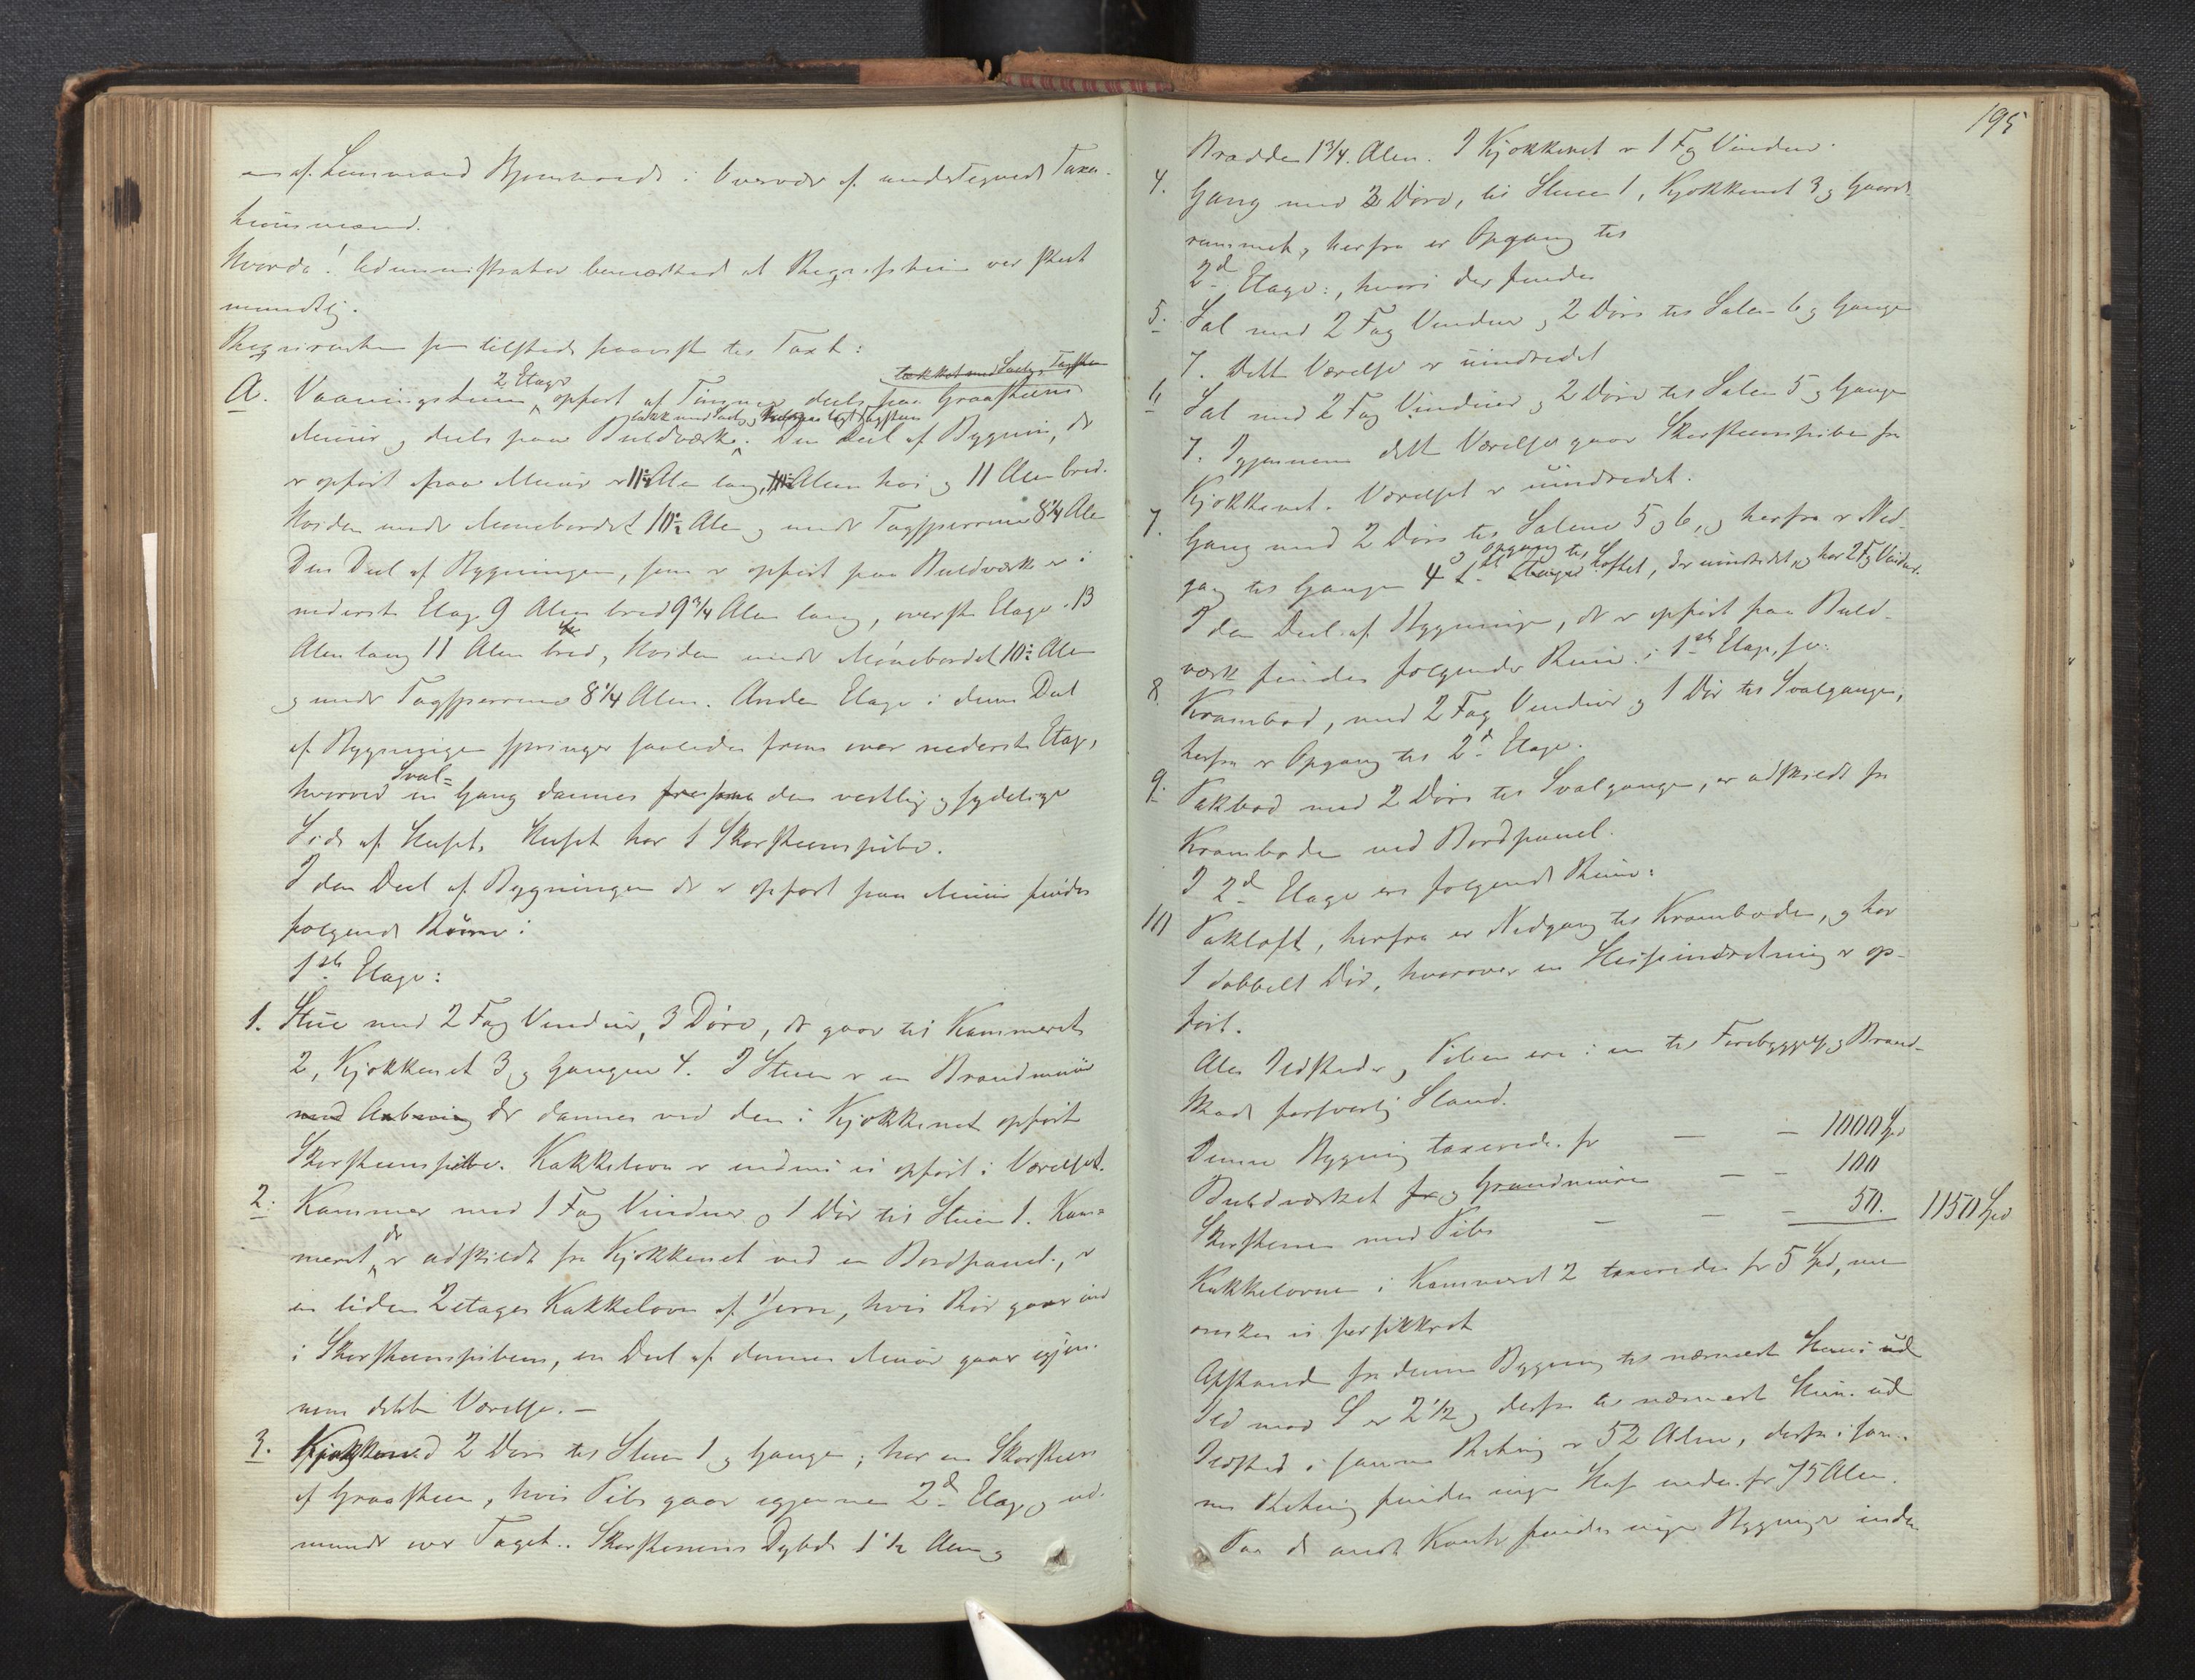 af Lensmand i Overvær af undertegnede Taxa-
tionsmænd.
Hvorda! Administrator bemærkede at Reqvisition var skeet
mundtlig.
Reqvirenten som tilstede paaviste til Taxt:
A. Vaaningshuus 2 Etager opført af Tømmer deels paa Graasteens
Muur og deels paa Buldværk. Den Deel af Bygning, der
er opført paa Muur er 11½ Alen lang, Alen høi og 11 Alen bred.
Høiden under Mønebordet 10½ Alen og under Tagsperrerne 8¼ Alen
Den Deel af Bygningen, som er opført paa Buldværk er i
nederste Etage 9 Alen bred 9¾ Alen lang, øverste Etage 13
Alen lang 11 Alen bred, Høiden under Mønebordet 10½ Alen
og under Tagsperrerne 8¼ Alen. Anden Etage i denne Deel
af Bygningen springer saaledes frem over nederste Etage,
hvorved en Sval-Gang dannes den vestlige og sydlige
Side af Huset. Huset har 1 Skorsteenspibe.
I den Deel af Bygningen der er opført paa Muur findes
følgende Rum:
1ste Etage:
1. Stue med 2 Fag Vinduer, 3 Døre, der gaar til Kammerset
2, Kjøkkenet 3 og Gangen 4. I Stuen er en Brandmuur
der dannes ved den i Kjøkkenet opførte
Skorsteenspibe. Kakkelovn er endnu ei opført i Værelset.
2. Kammer med 1 Fag Vinduer og 1 Dør til Stuen 1. Kam-
meret, der er adskildt fra Kjøkkenet ved en Bordpanel, er
en liden 2 etages Kakkelovn af Jern, hvis Rør gaar ind
i Skorsteenspiben, en Deel af dennes Muur gaar igjen-
nem dette Værelse. –
3. Kjøkken med 2 Døre til Stuen 1 og Gangen; har en Skorsteen
af Graasteen, hvis Pibe gaar igjennem 2d Etage og ud-
munder over Taget. Skorstenens Dybde 1½ Alen og
195
Bredde 1¾ Alen. I Kjøkkenet er 1 Fag Vinduer.
4. Gang med 3 Døre, til Stuen 1, Kjøkkenet 3 og Gaards-
rummet, herfra er Opgang til
2d Etage:, hvori der findes
5. Sal med 2 Fag Vinduer og 2 Døre til Salen 6 og Gangen
7. Dette Værelse er uindredet
6 Sal med 2 Fag Vinduer og 2 Døre til Salen 5 og Gangen
7. Igjennem dette Værelse gaar Skorsteenspiben fra
Kjøkkenet. Værelset er uindredet.
7. Gang med 2 Døre til Salene 5 og 6, og herfra er Ned-
gang til Gangen 4 og Opgang til Loftet, der er uindredet, og har 2 Fag Vinduer.
I den Deel af Bygningen, der er opført paa Buld-
værk findes følgende Rum i 1ste Etage, sc:
8 Krambod, med 2 Fag Vinduer og 1 Dør til Svalgangen,
herfra er Opgang til 2d Etage.
9. Pakbod med 2 Døre til Svalgangen, er adskildt fra
Kramboden ved Bordpanel.
I 2d Etage ere følgende Rum:
10 Pakloft, herfra er Nedgang til Kramboden, og har
1 dobbelt Dør, hvorover en Heiseindretning er op-
ført.
Alle Ildsteder og Piben ere i en til Forebyggelse af Brand-
skade forsvarlig Stand.
Denne Bygning taxeredes for – – 1000 Spd
Buldværket og Grundmuren – – 100
Skorstenen med Pibe – – – 50. 1150 Spd
Kakkelovnen i Kammeret 2 taxeredes for 5 Spd, men
ønskes ei forsikkret
Afstand fra denne Bygning til nærmeste Huus uden
Ild mod S er 2½ og derfra til nærmeste Huus med
Ildsted i samme Retning er 52 Alen, derfra i sam-
me Retning findes ingen Huse inden for 75 Alen.
Paa de andre Kanter findes ingen Bygninger inden